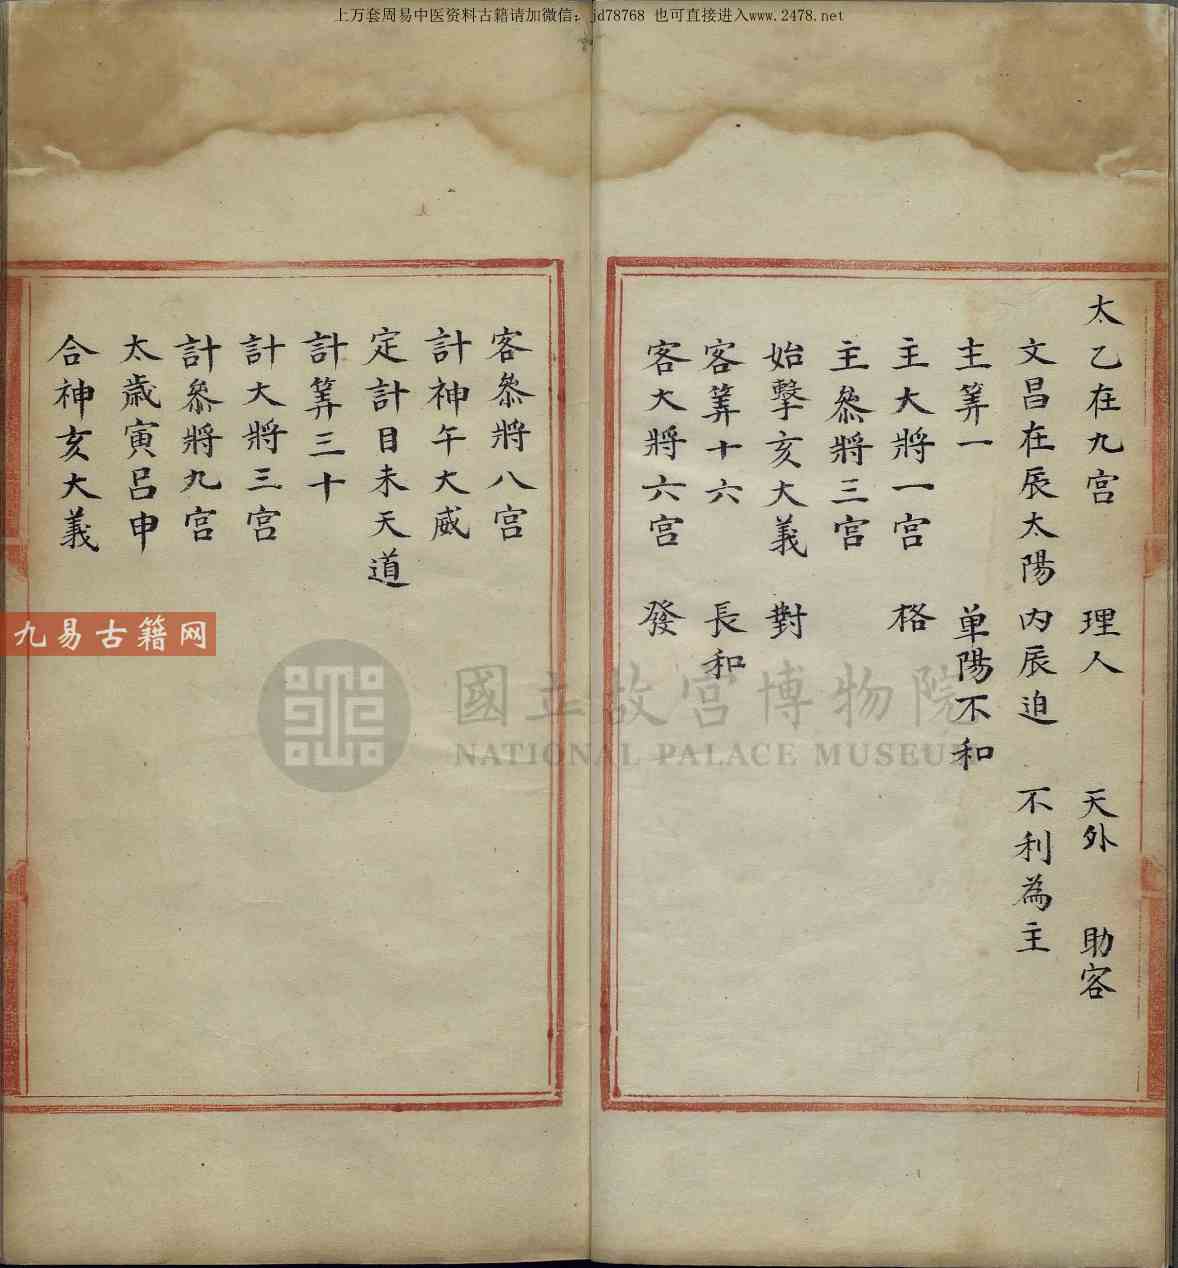 上万套周易中医资料古籍请加微信：jd78768 也可直接进入www.2478.net
太乙在九宫 理人 天外 助客
文昌在辰太陽 内辰迫 不利為主
主筭一 单陽不和
主大將一宫 格
主叅將三宫
始擊亥大義 對
客筭十六 長和
客大將六宫 發
客叅將八宫
計神午大威
定計目未天道
計筭三十
計大將三宫
計叅將九宫
太歲寅呂申
合神亥大義
九易古籍网
國立故宮博物院
NATIONAL PALACE MUSEUM